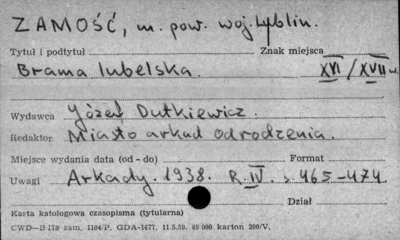 ZAMOŚĆ, m. pow. woj. Lyblin.
Tytuł i podtytuł Znak miejsca
Brama lubelska. XVI/XVII w.
Wydawca Józef Dutkiewicz.
Redaktor Miasto arkad odrodzenia.
Miejsce wydania data (od - do) Format
Uwagi Arkady. 1938. R. IV. s. 465-474.
Dział
Karta katologowa czasopisma (tytularna)
CWD—13 17a zam. 1104/P. GDA-1477. 11.5.59. 80 000 karton 200/V.